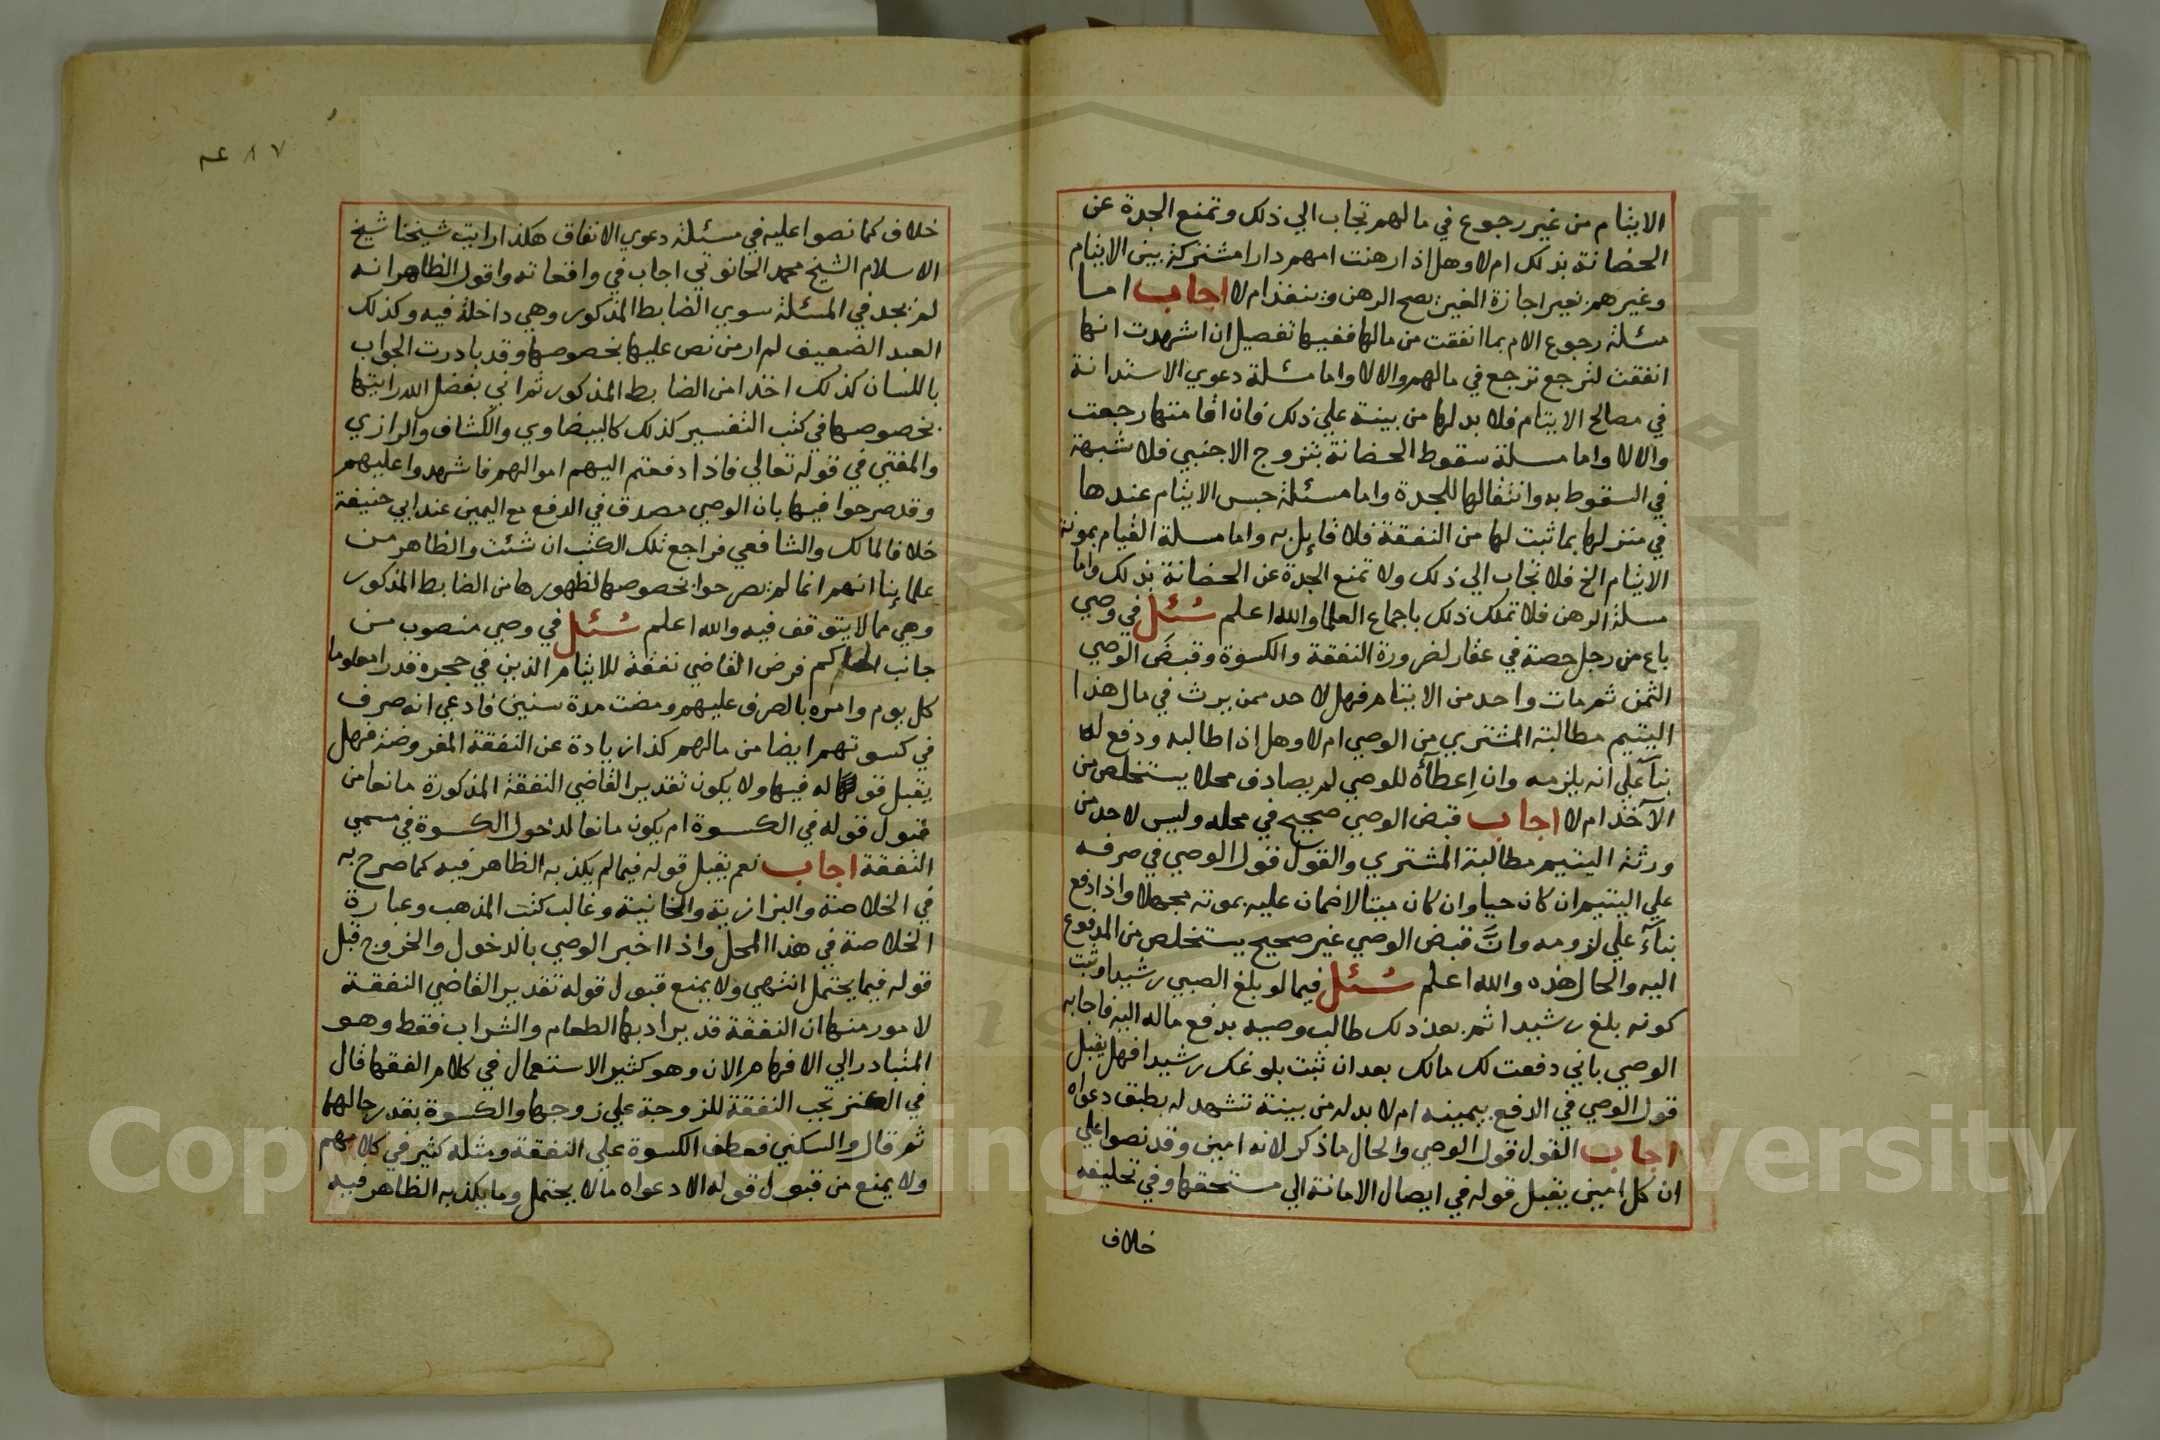 الايتام من غير رجوع في مالهم تجاب الي ذلك وتمنع الجدة عن
الحضانة بذلك ام لا وهل اذا رهنت امهم دارا مشتركة بين الايتام
وغيرهم بغير اجازة الغير يصح الرهن وينفذ ام لا اجاب اما
مسئلة رجوع الام بما انفقت من مالها ففيها تفصيل ان اشهدت انها
انفقت لترجع ترجع في مالهم والا لا واما مسئلة دعوي الاستدانة
في مصالح الايتام فلا بد لها من بينة علي ذلك فان اقامتها رجعت
والا لا واما مسلة سقوط الحضانة بتزوج الاجنبي فلا شبهة
في السقوط به وانتقالها للجدة واما مسئلة حبس الايتام عندها
في منزلها بما ثبت لها من النفقة فلا قايل به واما مسلة القيام بمونة
الايتام الخ فلا تجاب الي ذلك ولا تمنع الجدة عن الحضانة بذلك واما
مسلة الرهن فلا تملك ذلك باجماع العلما والله اعلم سُئل في وصي
باع من رجل حصة في عقار لضرورة النفقة والكسوة وقبض الوصي
الثمن ثم مات واحد من الايتام فهل لاحد ممن يرث في مال هذا
اليتيم مطالبة المشتري من الوصي ام لا وهل اذا طالبه ودفع له
بنآء علي انه يلزمه وان اعطآه للوصي لم يصادف محلا يستخلص من
الآخذ ام لا اجاب قبض الوصي صحيح في محله وليس لاحد من
ورثة اليتيم مطالبة المشتري والقول قول الوصي في صرفه
علي اليتيم ان كان حيا وان كان ميتا لا ضمان عليه بموته مجهلا واذا دفع
بنآء علي لزومه وان قبض الوصي غير صحيح يستخلص من المدفوع
اليه والحال هذه والله اعلم سُئل فيما لو بلغ الصبي رشيدا وثبت
كونه بلغ رشيدا ثم بعد ذلك طالب وصيه بدفع ماله اليه فاجابه
الوصي باني دفعت لك مالك بعد ان ثبت بلوغك رشيدا فهل يقبل
قول الوصي في الدفع بيمينه ام لا بد له من بينة تشهد له بطبق دعواه
اجاب القول قول الوصي والحال ما ذكر لانه امين وقد نصوا علي
ان كل امين يقبل قوله في ايصال الامانة الي مستحقها وفي تحليفه
خلاف
٨٧
خلاف كما نصوا عليه في مسئلة دعوي الانفاق هكذا رايت شيخنا شيخ
الاسلام الشيخ محمد الحانوتي اجاب في واقعاته واقول الظاهر انه
لم يجد في المسئلة سوي الضابط المذكور وهي داخلة فيه وكذلك
العبد الضعيف لم ار من نص عليها بخصوصها وقد بادرت الجواب
باللسان كذلك اخذا من الضابط المذكور ثم اني بفضل الله رايتها
بخصوصها في كتب التفسير كذلك كالبيضاوي والكشاف والرازي
والمفتي في قوله تعالي فاذا دفعتم اليهم اموالهم فاشهدوا عليهم
وقد صرحوا فيها بان الوصي مصدق في الدفع مع اليمين عند ابي حنيفة
خلافا لمالك والشافعي فراجع تلك الكتب ان شئت والظاهر من
علماينا انهم انما لم يصرحوا بخصوصها لظهورها من الضابط المذكور
وهي مما لا يتوقف فيه والله اعلم سُئل في وصي منصوب من
جانب الحاكم فرض القاضي نفقة للايتام الذين في حجره قدرا معلوما
كل يوم وامره بالصرف عليهم ومضت مدة سنين فادعي انه صرف
في كسوتهم ايضا من مالهم كذا زيادة عن النفقة المفروضة فهل
يقبل قوله فيها ولا يكون تقدير القاضي النفقة المذكورة مانعا من
قبول قوله في الكسوة ام يكون مانعا لدخول الكسوة في مسمي
النفقة اجاب نعم يقبل قوله فيما لم يكذبه الظاهر فيه كما صرح به
في الخلاصة والبزازية والخانية وغالب كتب المذهب وعبارة
الخلاصة في هذا المحل واذا اخبر الوصي بالدخول والخروج قبل
قوله فيما يحتمل انتهي ولا يمنع قبول قوله تقدير القاضي النفقة
لامور منها ان النفقة قد يراد بها الطعام والشراب فقط وهو
المتبادر الي الافهام الان وهو كثير الاستعمال في كلام الفقها قال
في الكنز تجب النفقة للزوجة علي زوجها والكسوة بقدر حالهما
ثم قال والسكني فعطف الكسوة علي النفقة ومثله كثير في كلامهم
ولا يمنع من قبول قوله الا دعواه ما لا يحتمل وما يكذبه الظاهر فيه